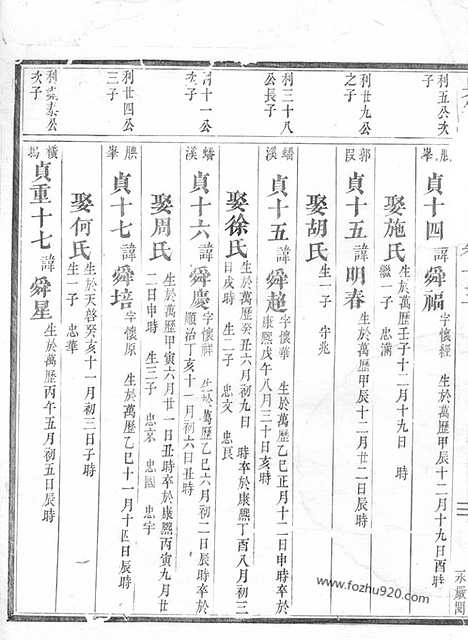 利五公次子
勝峯
貞十四諱舜福字懷經 生於萬歷甲辰十二月十九日酉時
娶施氏生於萬歷壬子十二月十九日 時
繼一子 忠滿
利廿九公之子
郭段
貞十五諱明春 生於萬歷甲辰十二月廿二日辰時
娶胡氏
生一子 守兆
利三十八公長子
蟠溪
貞十五諱舜超字懷華 生於萬歷乙巳正月十二日申時卒於
康熙戊午八月三十日亥時
娶徐氏生於萬歷癸丑六月初九日 時卒於康熙丁酉八月初三
日戌時 生二子 忠文 忠良
十一公次子
蟠溪
貞十六諱舜慶字懷 生於萬歷乙巳六月初二日辰時卒於
順治丁亥十一月初六日丑時
娶周氏 生於萬歷甲寅六月廿一日丑時卒於康熙丙寅九月廿
二日申時 生三子 忠京 忠國 忠宇
利廿四公三子
勝峯
貞十七諱舜培字懷原 生於萬歷乙巳十一月十四日辰時
娶何氏生於天啓癸亥十一月初三日子時
生一子 忠華
利 素公次子
橫塢
貞重十七諱舜星 生於萬歷丙午五月初五日辰時
www.fozhu920.com